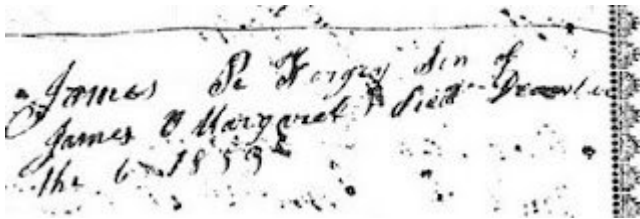 James Forgey Son of
James & Margaret Died December
the 6 1853